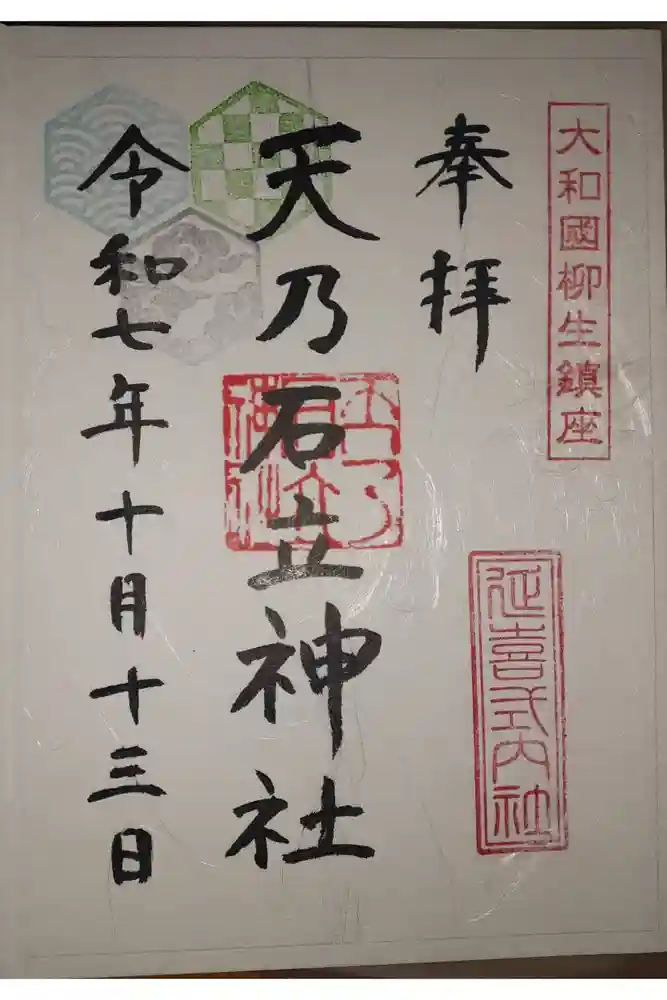 大和國柳生鎮座
延喜式内社
奉拝
天乃石立神社
天乃石立神社
令和七年十月十三日